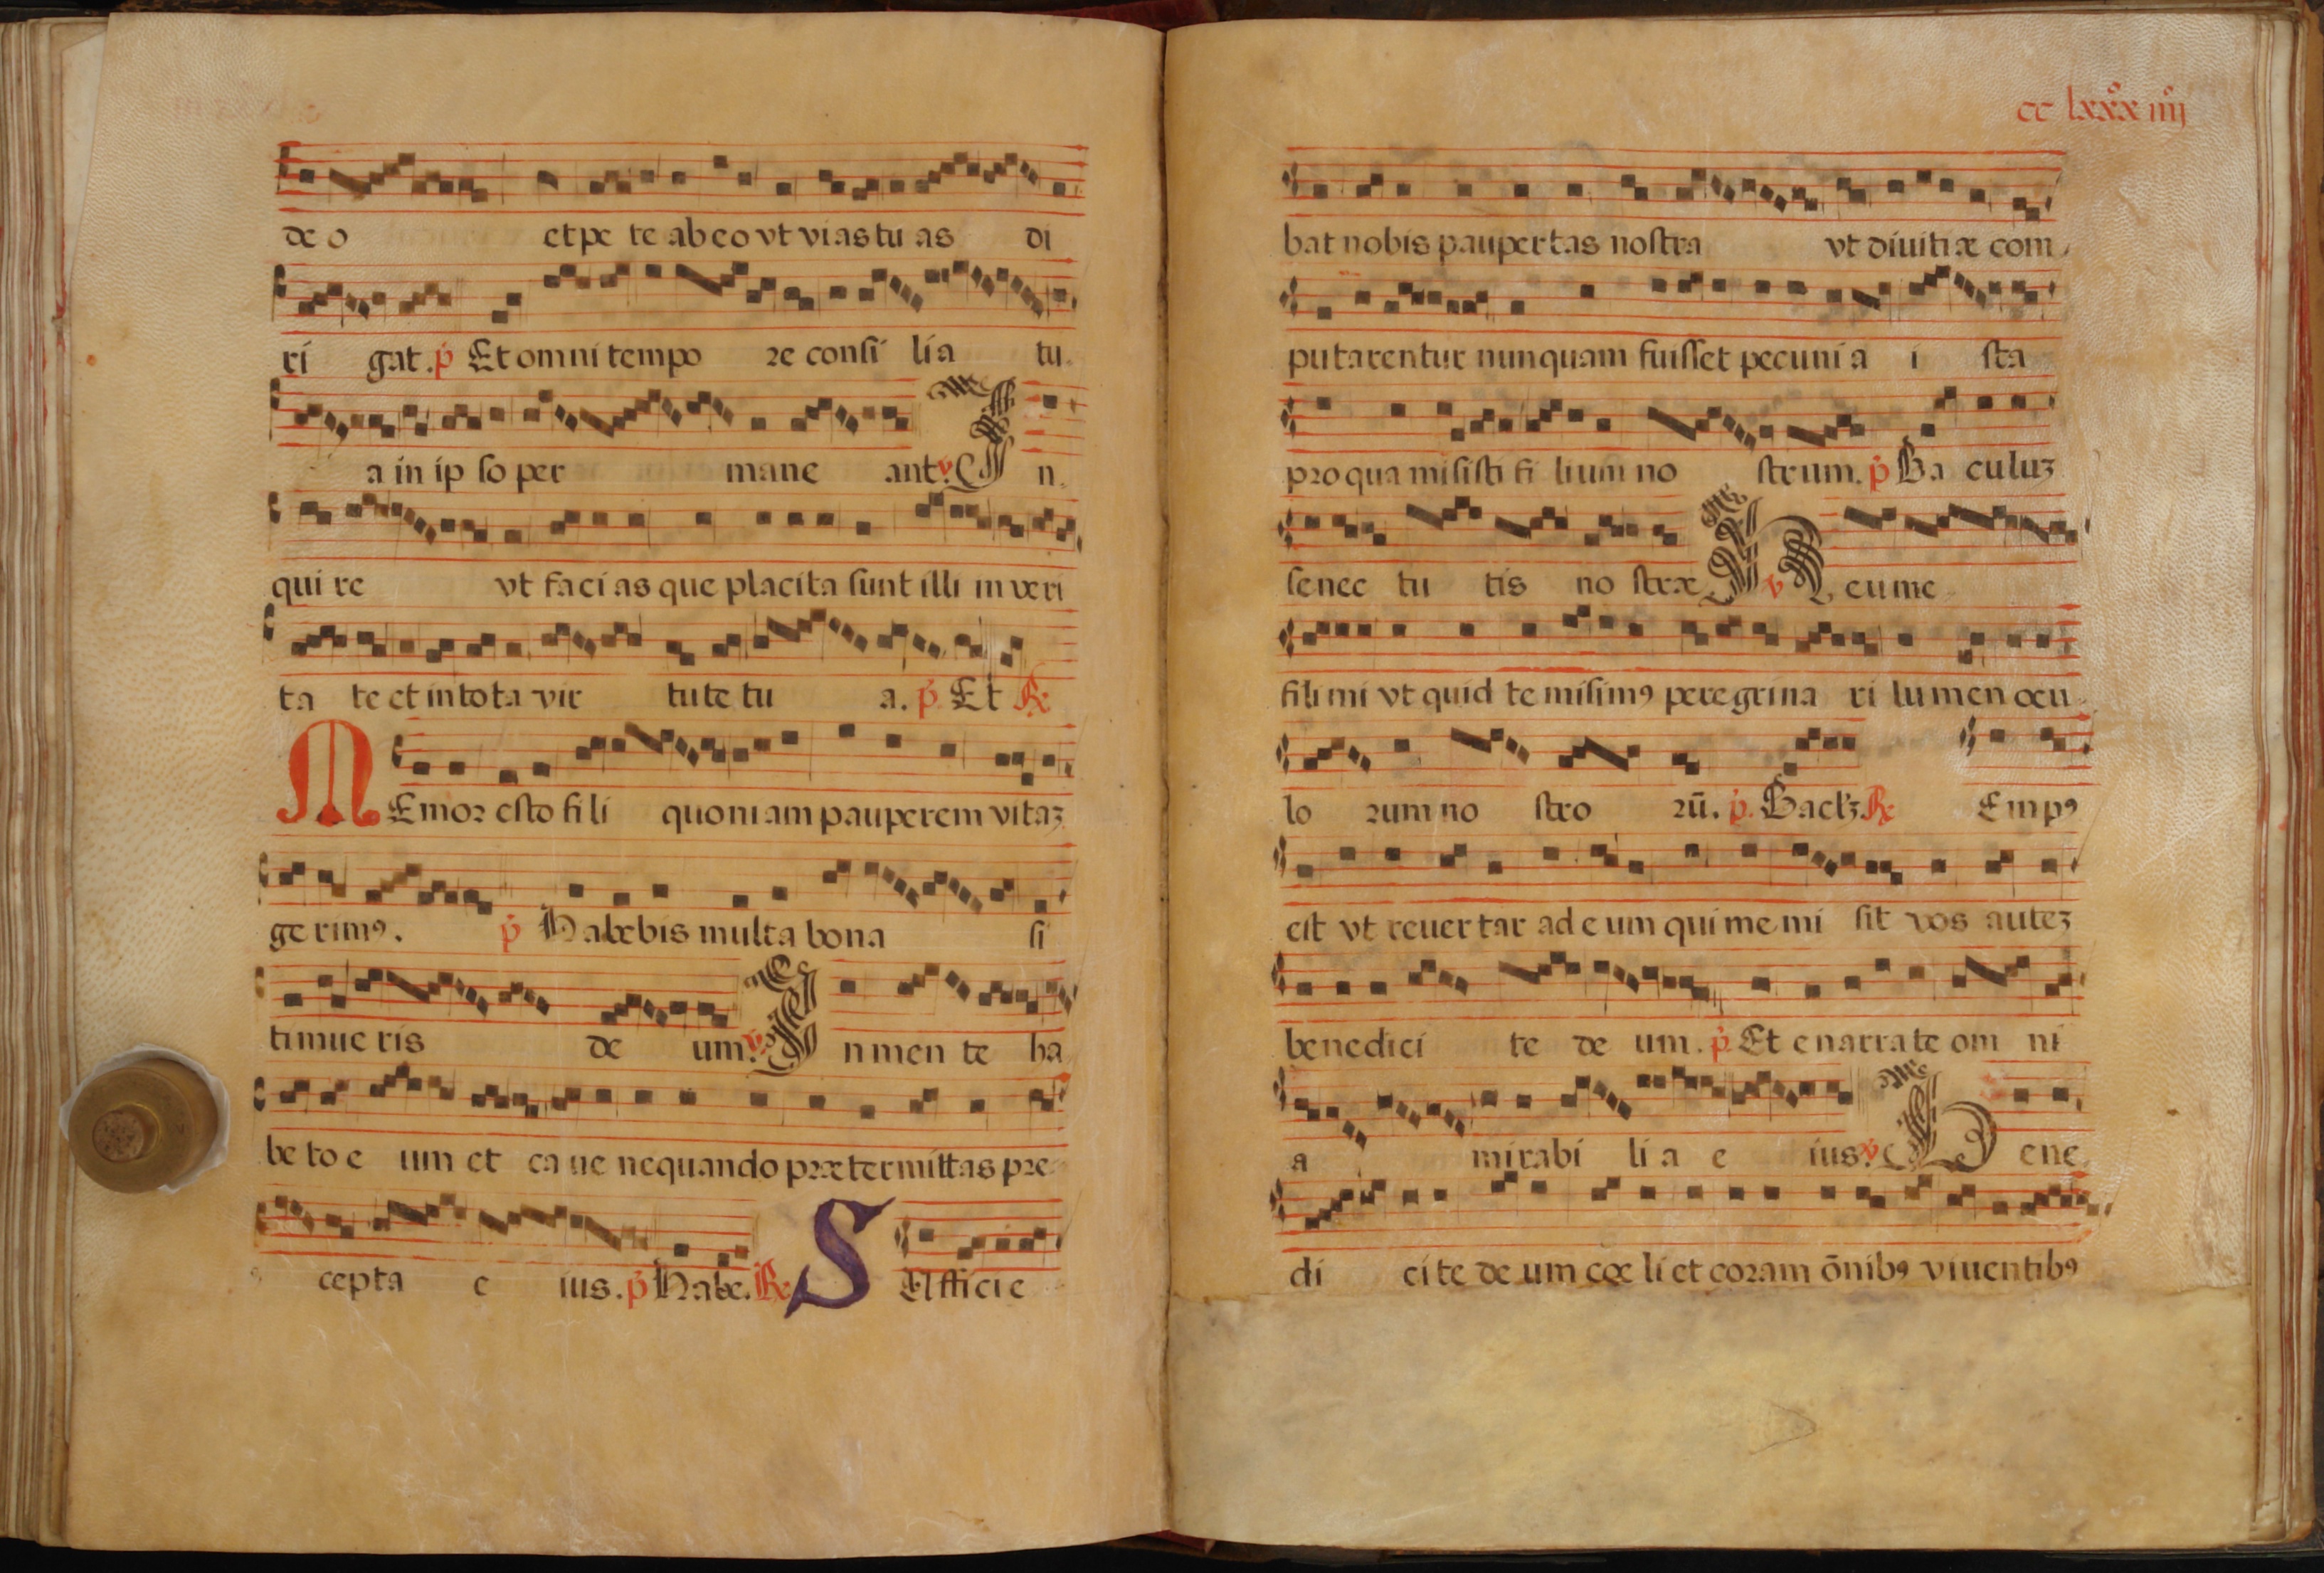 de o et pe te ab eo vt vias tu as di
ri gat. p̄ Et omni tempo re consi lia tu
a in ip so per mane ant. v In
qui re vt faci as que placita sunt illi in veri
ta te et in tota vir tute tu a. p̄ Et R
MEmor esto fi li quoniam pauperem vitaȝ
ge rimꝰ. p̄ Habebis multa bona si
timue ris de um. v In men te ha
be to e um et ca ue nequando prætermittas pre
cepta e ius. p̄ Habe. R SUfficie
cc lxxx iiij
bat nobis paupertas nostra vt diuitiæ com
putarentur nunquam fuisset pecunia i sta
pro qua misisti fi lium no strum. p̄ Ba culuȝ
senec tu tis no stræ v Heu me
fili mi vt quid te misimꝰ peregrina ri lumen ocu
lo rum no stro rū. p̄ Baclȝ R Empꝰ
est vt reuer tar ad e um qui me mi sit vos auteȝ
benedici te de um. p̄ Et enarrate om ni
a mirabi li a e ius. v Bene
di ci te de um cœ li et coram ōnibꝰ viuentibꝰ